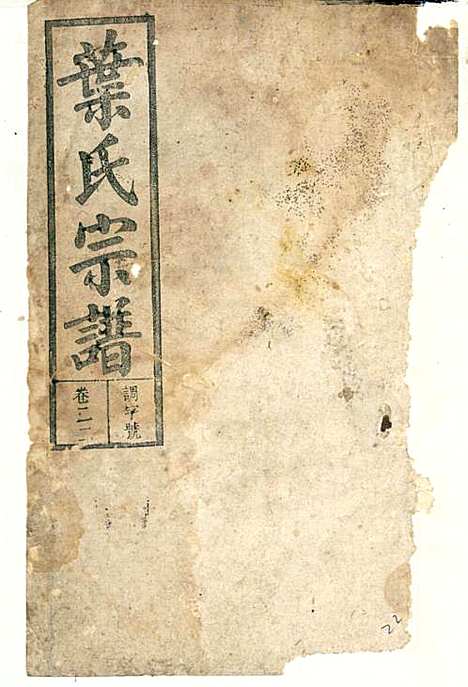 葉氏宗譜
調字號
卷二二
22